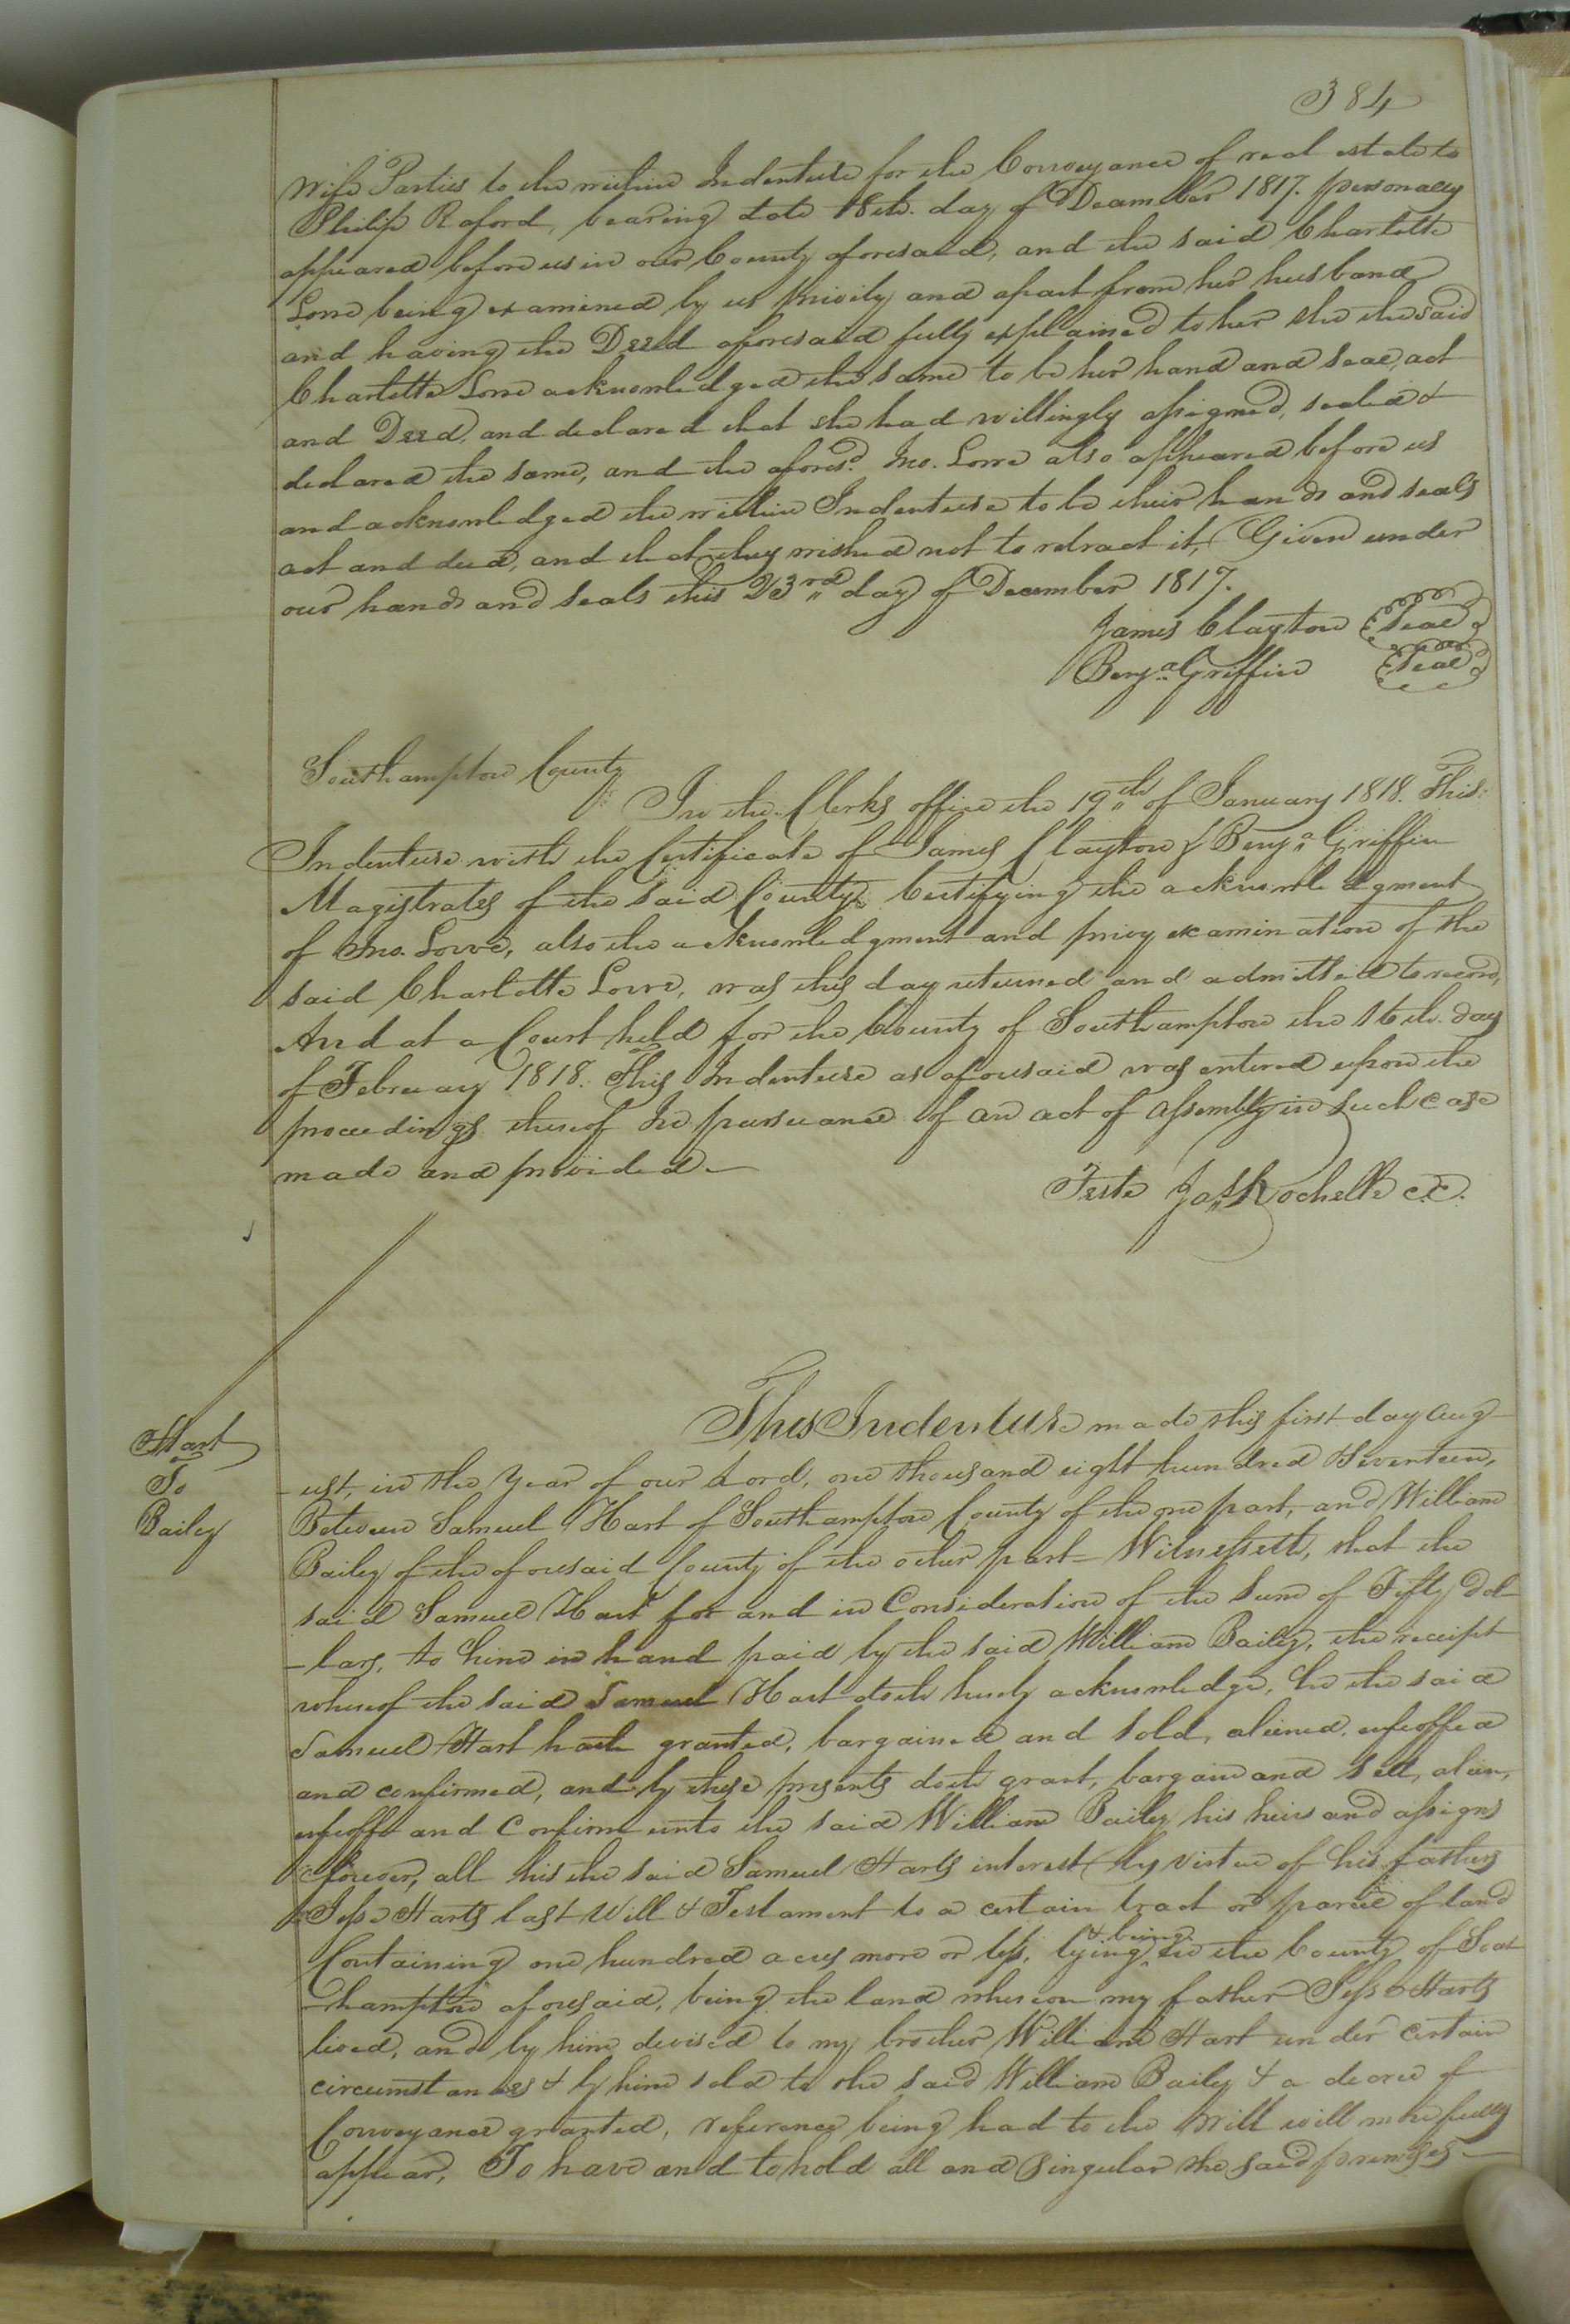 384
Wife Parties to the within Indenture for the Conveyance of real estate to
Philip Raford, bearing date 18th. day of December 1817. personally
appeared before us in our County aforesaid, and the said Charlotte
Lowe being examined by us privily and apart from her husband
and having the Deed aforesaid fully explained to her she the said
Charlotte Lowe acknowledged the same to be her hand and seal, act
and Deed, and declared that she had willingly assigned, sealed &
declared the same, and the aforesd. Jno. Lowe also appeared before us
and acknowledged the within Indenture to be their hands and seals
act and deed, and that they wished not to retract it, Given under
our hands and seals this 23rd day of December 1817.
James Clayton Seal
Benja Griffin Seal
Southampton County
In the Clerks office the 19th of January 1818. This
Indenture with the Certificate of James Clayton & Benja Griffin
Magistrates of the said County, Certifying the acknowledgment
of Jno. Lowe, also the acknowledgment and privy examination of the
said Charlotte Lowe, was this day returned and admitted to record,
And at a Court held for the County of Southampton the 16th. day
of February 1818. This Indenture as aforesaid was entered upon the
proceedings thereof In pursuance of an act of Assembly in such case
made and provided
Teste Jas Rochelle c.c.
Hart
To
Bailey
This Indenture made this first day Aug
-ust, in the Year of our Lord, one thousand eight hundred & Seventeen,
Between Samuel Hart of Southampton County of the one part, and William
Bailey of the aforesaid County of the other part Witnesseth, that the
said Samuel Hart for and in Consideration of the Sum of Fifty Dol
-lars, to him in hand paid by the said William Bailey, the receipt
whereof the said Samuel Hart doth hereby acknowledge, he the said
Samuel Hart hath granted, bargained and sold, aliened, enfeoffed
and confirmed, and by these presents doth grant, bargain and sell, alien,
enfeoff and Confirm unto the said William Bailey his heirs and assigns
forever, all his the said Samuel Harts interest by virtue of his fathers
Jesse Harts last Will & Testament to a certain tract or parcel of land
Containing one hundred acres more or less, lying & being in the County of Sout
-hampton aforesaid, being the land whereon my father Jesse Harts
lived, and by him devised to my brother William Hart under certain
circumstances & by him sold to the said William Bailey & a decree of
Conveyance granted, reference being had to the Will will more fully
appear, To have and to hold all and Singular the said premises